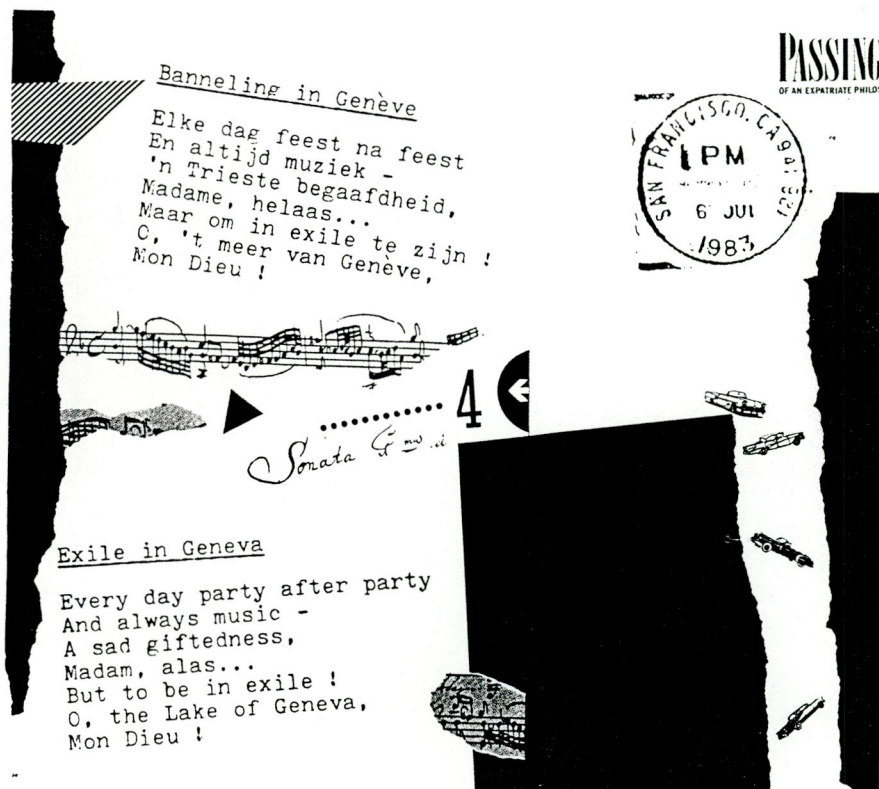 PASSING
OF AN EXPATRIATE PHILOS
Banneling in Genève
Elke dag feest na feest
En altijd muziek -
'n Trieste begaafdheid,
Madame, helaas...
Maar om in exile te zijn !
O, 't meer van Genève,
Mon Dieu !
SAN FRANCISCO, CA 941
PM
6 JUL
1983
4
Sonata
Exile in Geneva
Every day party after party
And always music -
A sad giftedness,
Madam, alas...
But to be in exile !
O, the Lake of Geneva,
Mon Dieu !